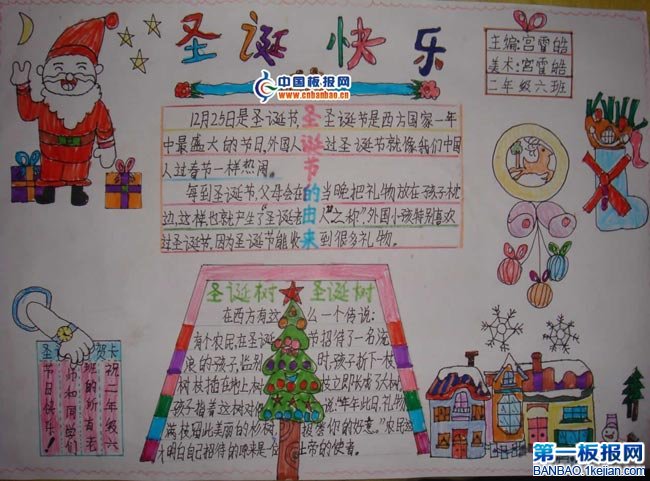 圣诞快乐
主编:宫雪皓
美术:宫雪皓
二年级六班
中国板报网
www.cnbanbao.cn
圣诞节的由来
12月25日是圣诞节,圣诞节是西方国家一年
中最盛大的节日,外国人过圣诞节就像我们中国
人过春节一样热闹。
每到圣诞节,父母会在当晚把礼物放在孩子枕
边,这样,也就产生了"圣诞老人"之称"外国小孩特别喜欢
过圣诞节,因为圣诞节能收到很多礼物。
圣诞树 圣诞树
在西方有这么一个传说:
有个农民在圣诞节招待了一名流
浪的孩子,临别时,孩子折下一枝
树枝插在地上,树枝立即长成大树,
孩子指着这树对他说:"年年此日,礼物
满枝,留此美丽的杉树,报答你的好意。"农民
才明白自己招待的原来是一位上帝的使者。
圣 贺卡
祝二年级六
班的所有老
师和同学们
节日快乐!
第一板报网
BANBAO.1kejian.com